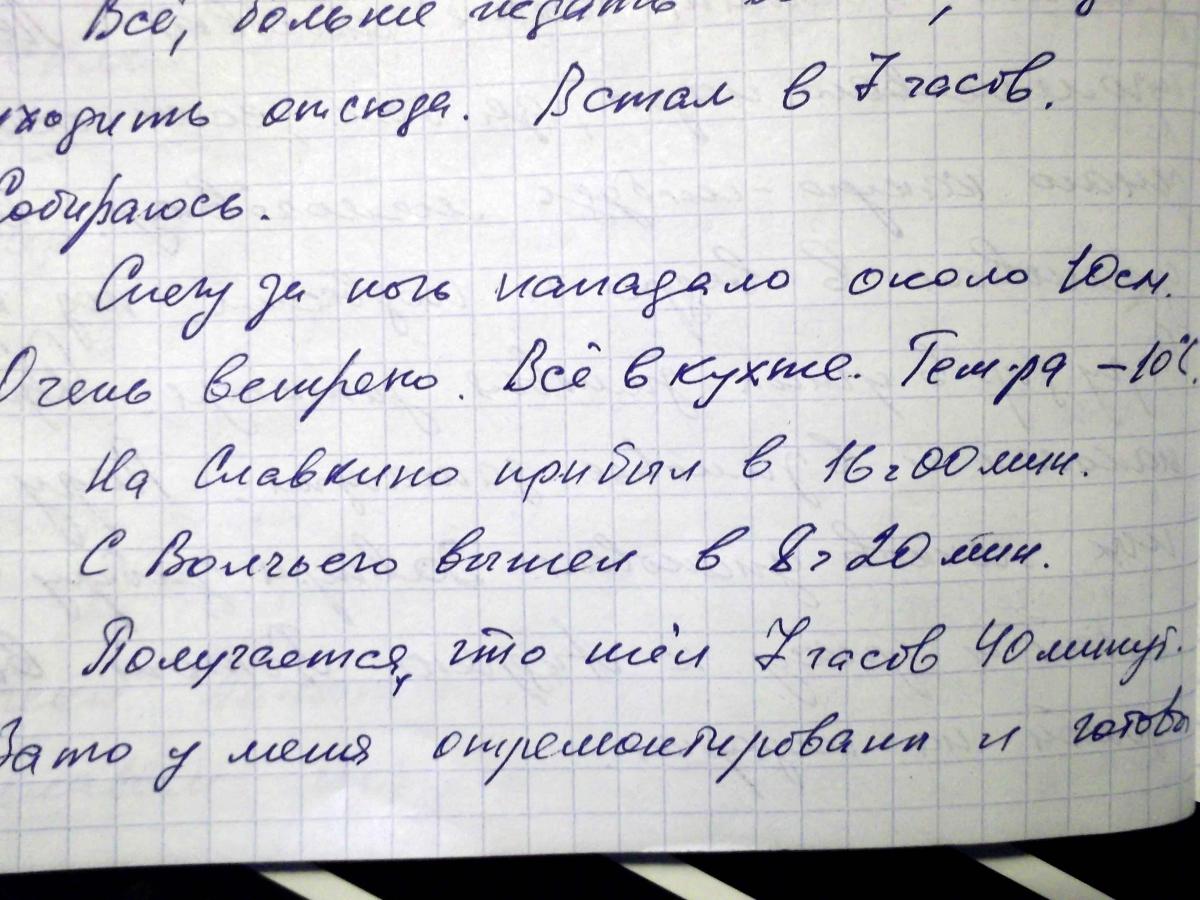 Всё, больше ждать
уходить отсюда. Встал в 7 часов.
Собираюсь.
Снегу за ночь нападало около 10см.
Очень ветрено. Всё в кухте. Тем-ра -10°С.
На Славкино прибыл в 16г00мин.
С Волчьего вышел в 8г20мин.
Получается, что шёл 7 часов 40 минут.
Зато у меня отремонтированы и готовы